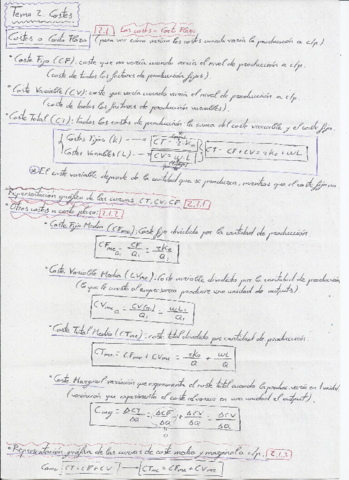 Tema 2: Costes
Costes a Corto Plazo 2.1 Los costes a Corto Plazo (para ver cómo varían los costes cuando varía la producción a c/p.)
* Coste Fijo (CF): coste que no varía cuando varía el nivel de producción a c/p.
(coste de todos los factores de producción fijos)
* Coste Variable (CV): coste que varía cuando varía el nivel de producción a c/p.
(coste de todos los factores de producción variables)
* Coste Total (CT): todos los costes de producción la suma del coste variable y el coste fijo
Costes Fijos (k) → CF = r·k₀
Costes Variables (L) → CV = w·L CT = CF + CV = rk₀ + wL
El coste variable depende de la cantidad que se produzca, mientras que el coste fijo no
Representación gráfica de las curvas CT, CV, CF 2.1.1
* Otros costes a corto plazo: 2.1.2
* Coste Fijo Medio (CFme): Coste fijo dividido por la cantidad de producción
CFme = CF/Q = rk₀/Q
* Coste Variable Medio (CVme): Coste variable dividido por la cantidad de producción
(lo que le cuesta al empresario producir una unidad de output)
CVme = CV(Q)/Q = wL/Q
* Coste Total Medio (CTme): coste total dividido por cantidad de producción
CTme = CFme + CVme = rk₀/Q + wL/Q
* Coste Marginal: variación que experimenta el coste total cuando la produc. varía en 1 unidad
(variación que experimenta el coste al variar en una unidad el output).
Cmg = ΔCT/ΔQ = ΔCF/ΔQ + ΔCV/ΔQ = ΔCV/ΔQ
* Representación gráfica de las curvas de coste medio y marginal a c/p. 2.1.3
Como CT = CF + CV → CTme = CFme + CVme